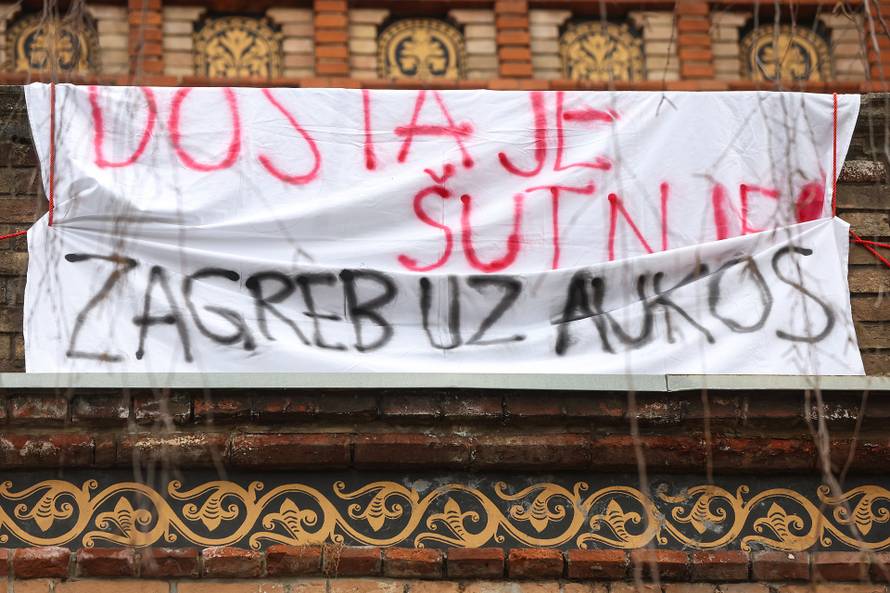 DOSTA JE
ŠUTNJE
ZAGREB UZ AUKOS